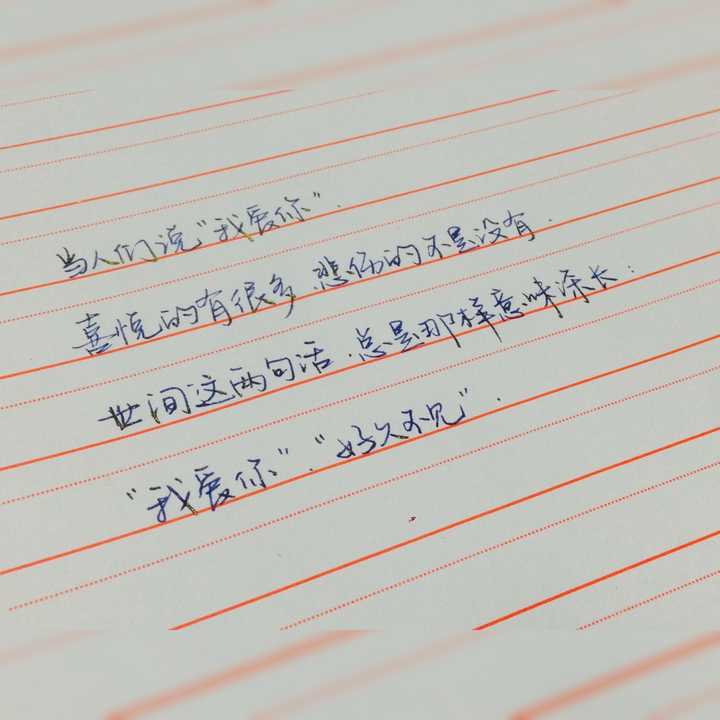 当人们说“我爱你”.
喜悦的有很多 悲伤的不是没有.
世间这两句话.总是那样意味深长.
“我爱你”.“好久不见”.